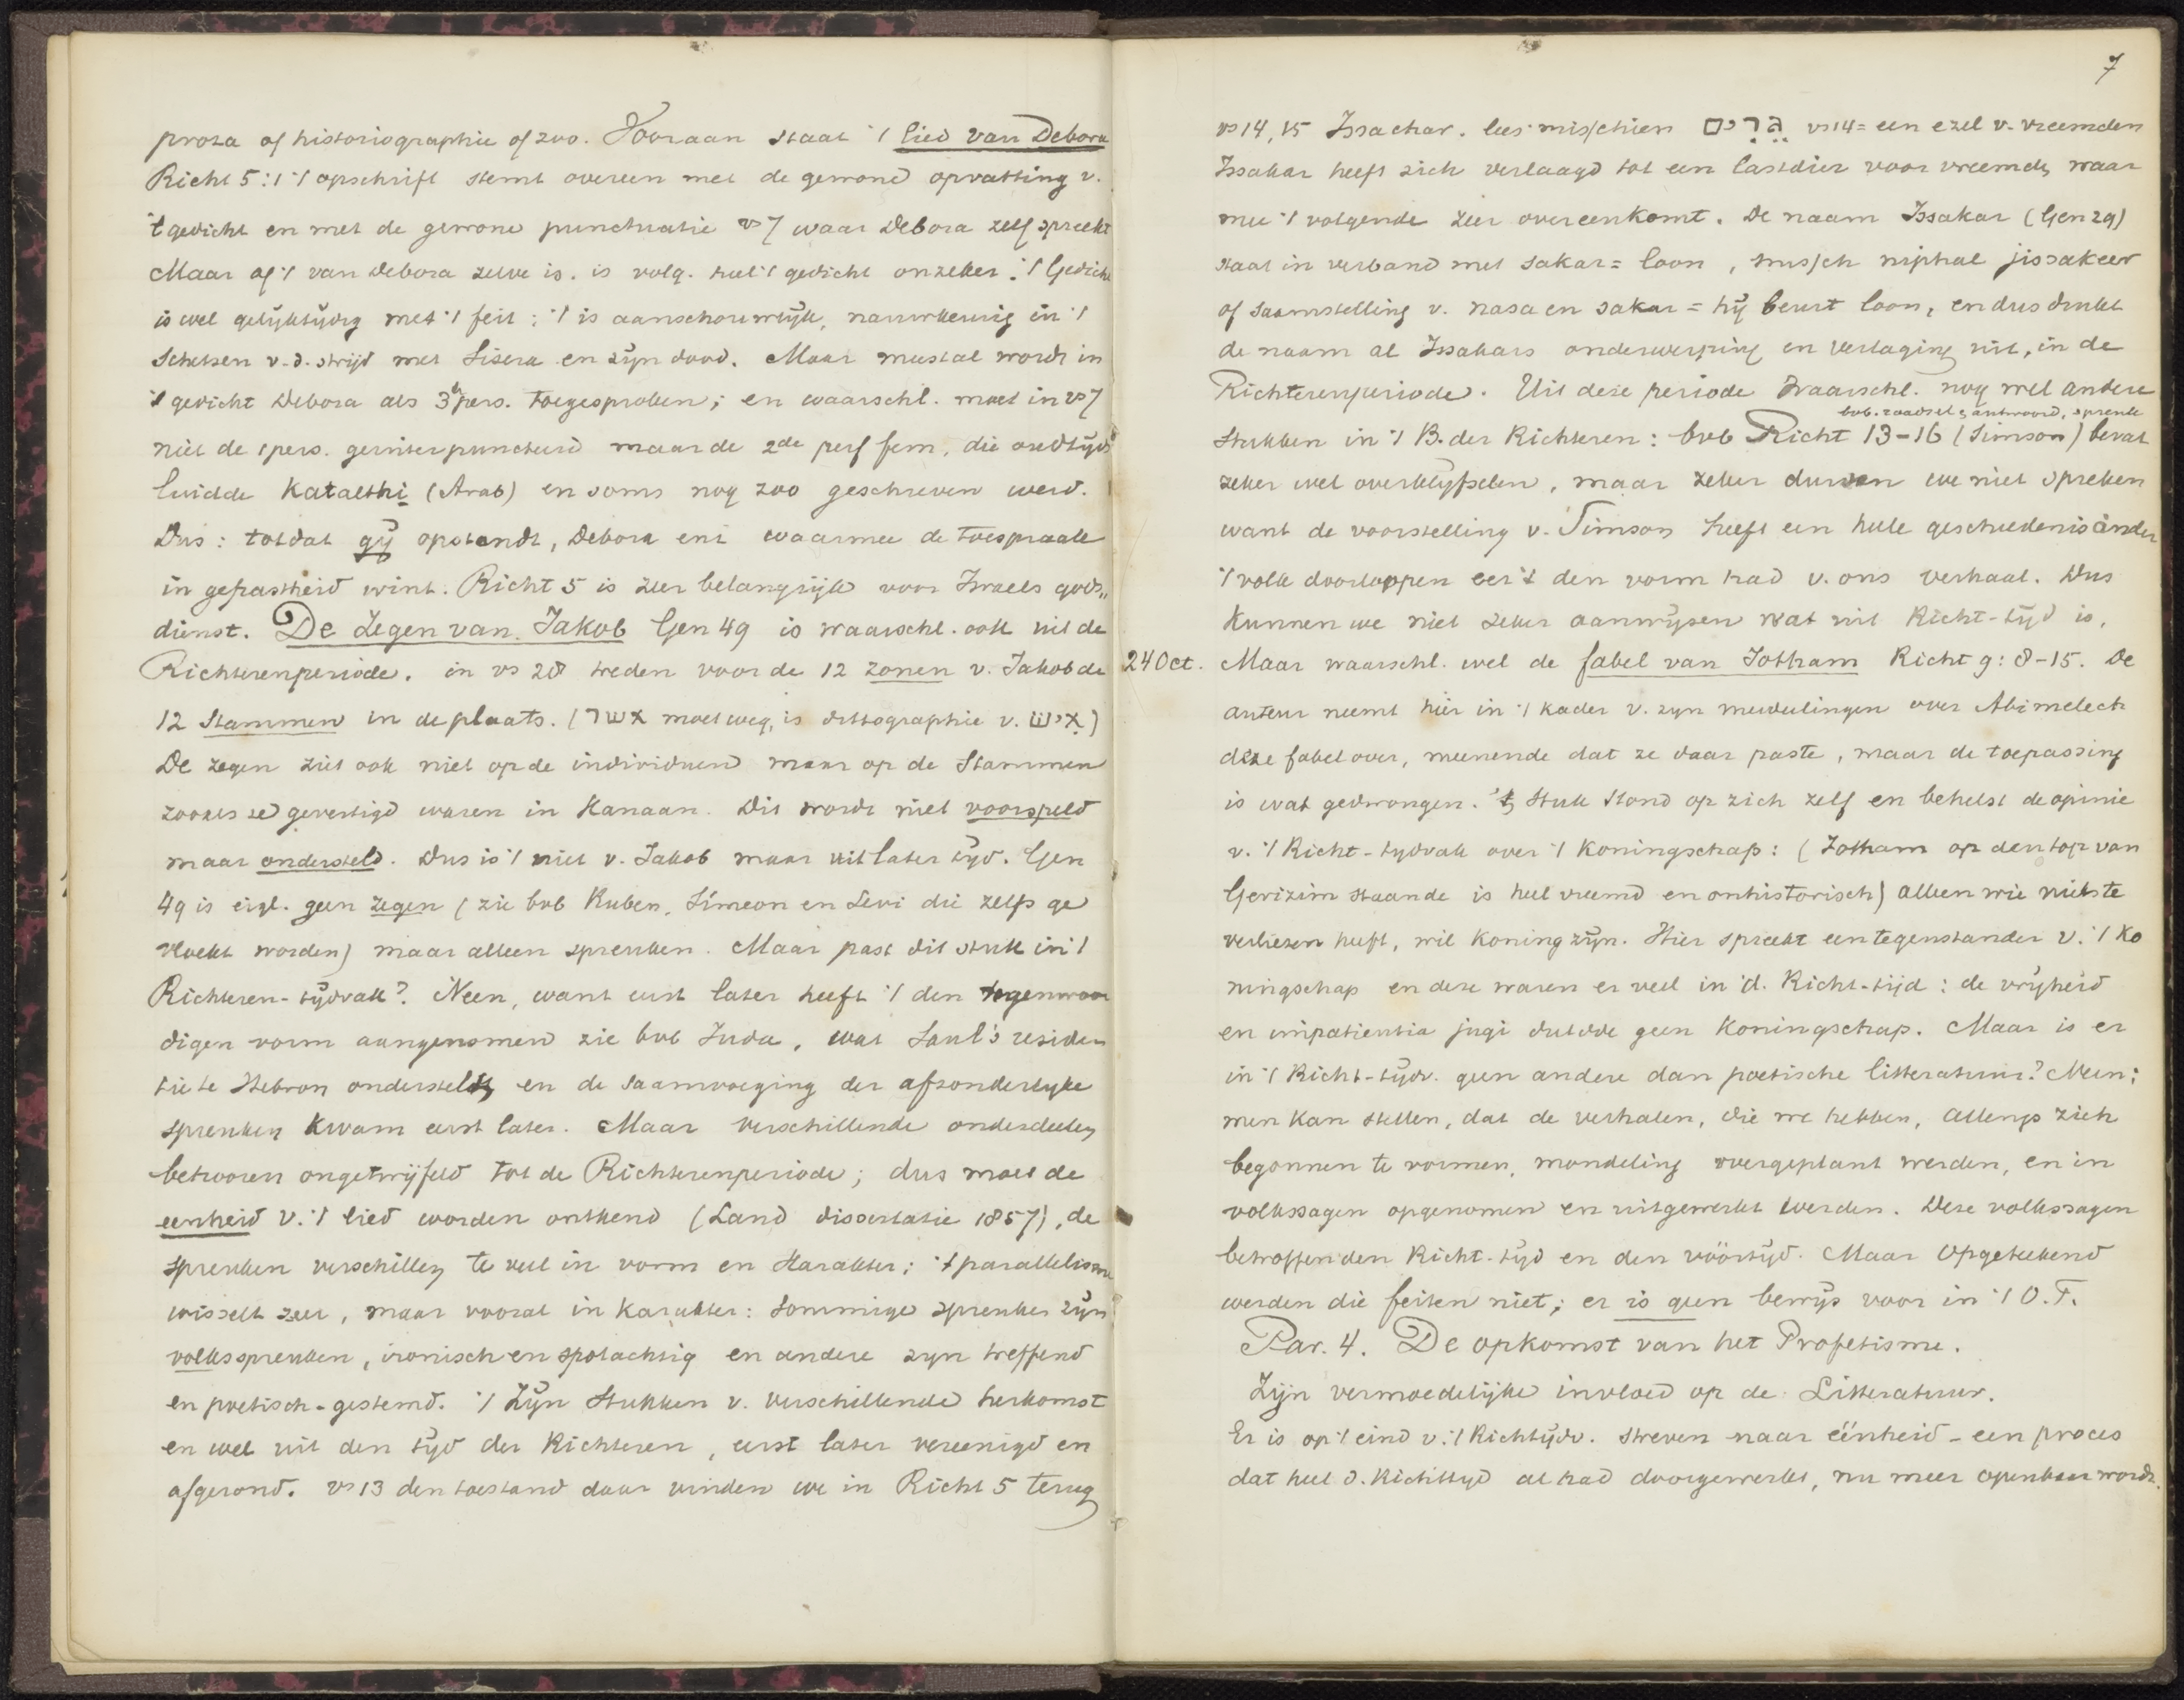 proza of historiographie of zoo. Vooraan staat 't lied van Debora
Richt 5:1 't opschrift stemt overeen met de gewone opvatting v.
't gedicht en met de gewone punctuatie vs 7 waar Debora zelf spreekt
Maar of 't van Debora zelve is. is volg. heel 't gedicht onzeker. 't Gedicht
is wel gelijktijdig met 't feit: 't is aanschouwlijk, nauwkeurig in 't
schetsen v. d. strijd met Sisera en zijn dood. Maar meestal wordt in
't gedicht Debora als 3e pers. toegesproken; en waarschl. moet in vs 7
niet de 1 pers. geinterpuncteerd maar de 2de perf fem, die oudtijds
luidde Katalthi (Arab) en soms nog zoo geschreven werd.
Dus: totdat gij opstondt, Debora enz waarmee de toespraak
in gepastheid wint. Richt 5 is zeer belangrijk voor Israels gods„
dienst. De Zegen van Jakob Gen 49 is waarschl. ook uit de
Richterenperiode. in vs 28 treden voor de 12 zonen v. Jakob de
12 Stammen in de plaats. (אשר moet weg, is dittographie v. איש)
De zegen ziet ook niet op de individuen maar op de Stammen
zooals ze gevestigd waren in Kanaan. Dit wordt niet voorspeld
maar ondersteld. Dus is 't niet v. Jakob maar uit later tijd. Gen
49 is eigl. geen zegen (zie bvb Ruben, Simeon en Levi die zelfs ge
vloekt worden) maar alleen spreuken. Maar past dit stuk in 't
Richteren-tijdvak? Neen, want eerst later heeft 't den tegenwoor
digen vorm aangenomen zie bvb Juda, wat Saul's residen
tie te Hebron onderstelt, en de saamvoeging der afzonderlijke
spreuken kwam eerst later. Maar verschillende onderdeelen
behooren ongetwijfeld tot de Richterenperiode; dus moet de
eenheid v. 't lied worden ontkend (Land dissertatie 1857), de
spreuken verschillen te veel in vorm en Karakter; 't parallelisme
wisselt zeer, maar vooral in karakter: sommige spreuken zijn
volksspreuken, ironisch en spotachtig en andere zyn treffend
en poetisch-gestemd. 't Zijn stukken v. verschillende herkomst
en wel uit den tijd der Richteren, eerst later vereenigd en
afgerond. vs 13 den toestand daar vinden we in Richt 5 terug
7
vs 14, 15 Issachar. lees misschien גרים vs 14 = een ezel v. vreemden
Issakar heeft zich verlaagd tot een lastdier voor vreemden, waar
mee 't volgende zeer overeenkomt. De naam Issakar (Gen 29)
staat in verband met sakar = loon, missch niphal jissakeer
of saamstelling v. nasa en sakar = hij beurt loon, en dus drukt
de naam al Issakars onderwerping en verlaging uit, in de
Richterenperiode. Uit deze periode waarschl. nog wel andere
bvb. raadsel & antwoord, spreuk
stukken in 't B. der Richteren: bvb Richt 13-16 (Simson) bevat
zeker wel overblijfselen, maar zeker durven we niet spreken
want de voorstelling v. Simson heeft een heele geschiedenis onder
't volk doorloopen eer 't den vorm had v. ons verhaal. Dus
kunnen we niet zeker aanwijzen wat uit Richt-tijd is,
24 Oct. Maar waarschl. wel de fabel van Jotham Richt 9: 8-15. De
auteur neemt hier in 't kader v. zyn mededeelingen over Abimelech
deze fabel over, meenende dat ze daar paste, maar de toepassing
is wat gedwongen. 't stuk stond op zich zelf en behelst de opinie
v. 't Richt-tydvak over 't Koningschap: (Jotham op den top van
Gerizim staande is heel vreemd en onhistorisch) alleen wie niets te
verliezen heeft, wil koning zijn. Hier spreekt een tegenstander v. 't Ko
ningschap en deze waren er veel in d. Richt-tijd: de vrijheid
en impatientia jugi duldde geen Koningschap. Maar is er
in 't Richt-tijdv. geen andere dan poetische litteratuur? Neen;
men kan stellen, dat de verhalen, die we hebben, allengs zich
begonnen te vormen, mondeling overgeplant werden, en in
volkssagen opgenomen en uitgewerkt werden. Deze volkssagen
betroffen den Richt-tyd en den vóórtijd. Maar opgeteekend
werden die feiten niet; er is geen bewijs voor in 't O.T.
Par. 4. De opkomst van het Profetisme.
Zijn vermoedelijke invloed op de Litteratuur.
Er is op 't eind v. 't Richtijdv. streven naar éénheid - een proces
dat heel d. Richttyd al had doorgewerkt, nu meer openbaar wordt.